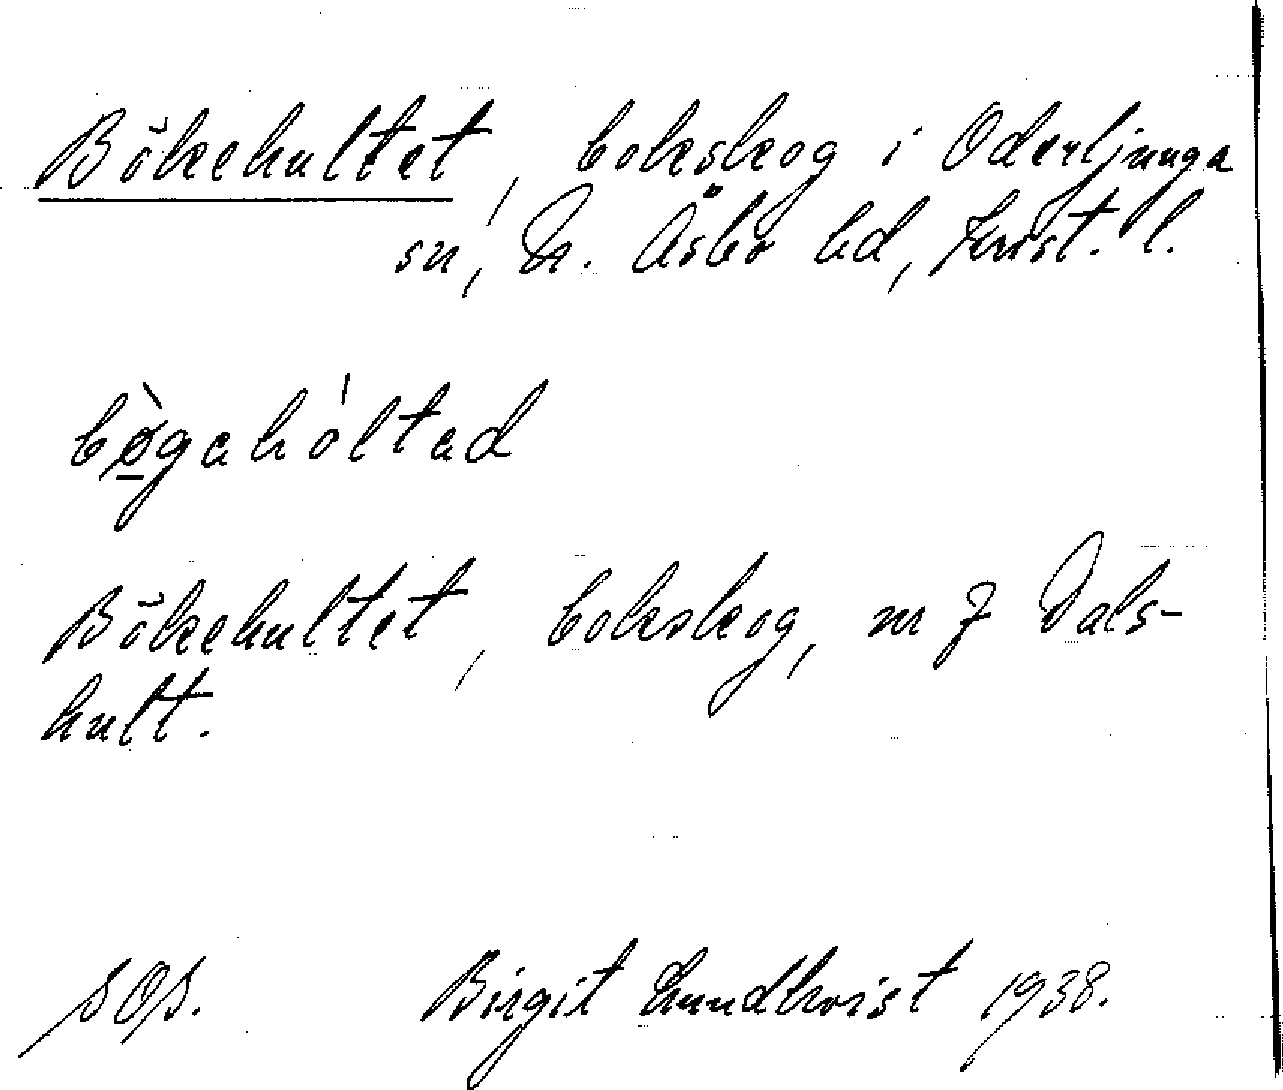 Bökehultet, bokskog i Oderljunga
sn, N. Åsbo hd, Krist. l.
bø̀gahóltad
Bökehultet, bokskog, nr 7 Dals-
hult.
SOS. Birgit Lundkvist 1938.